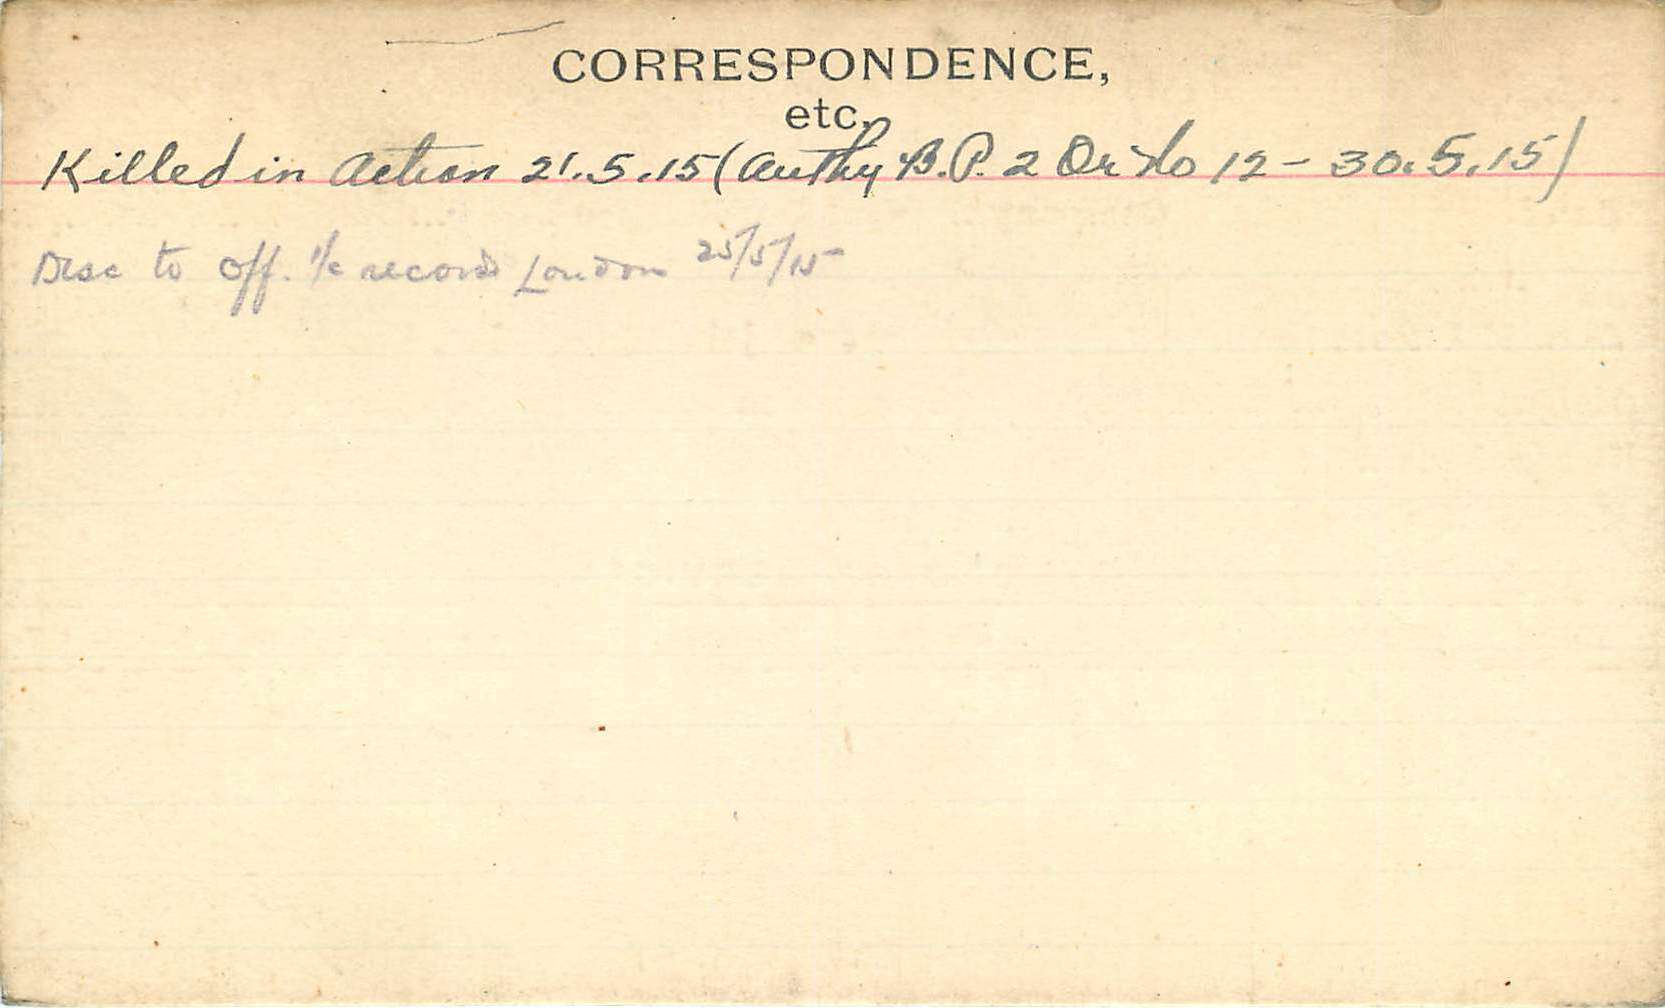 CORRESPONDENCE,
etc.
Killed in Action 21.5.15 (Authy B.P. 2 Or No 12 - 30.5.15)
Disc to Off. i/c records London 25/5/15